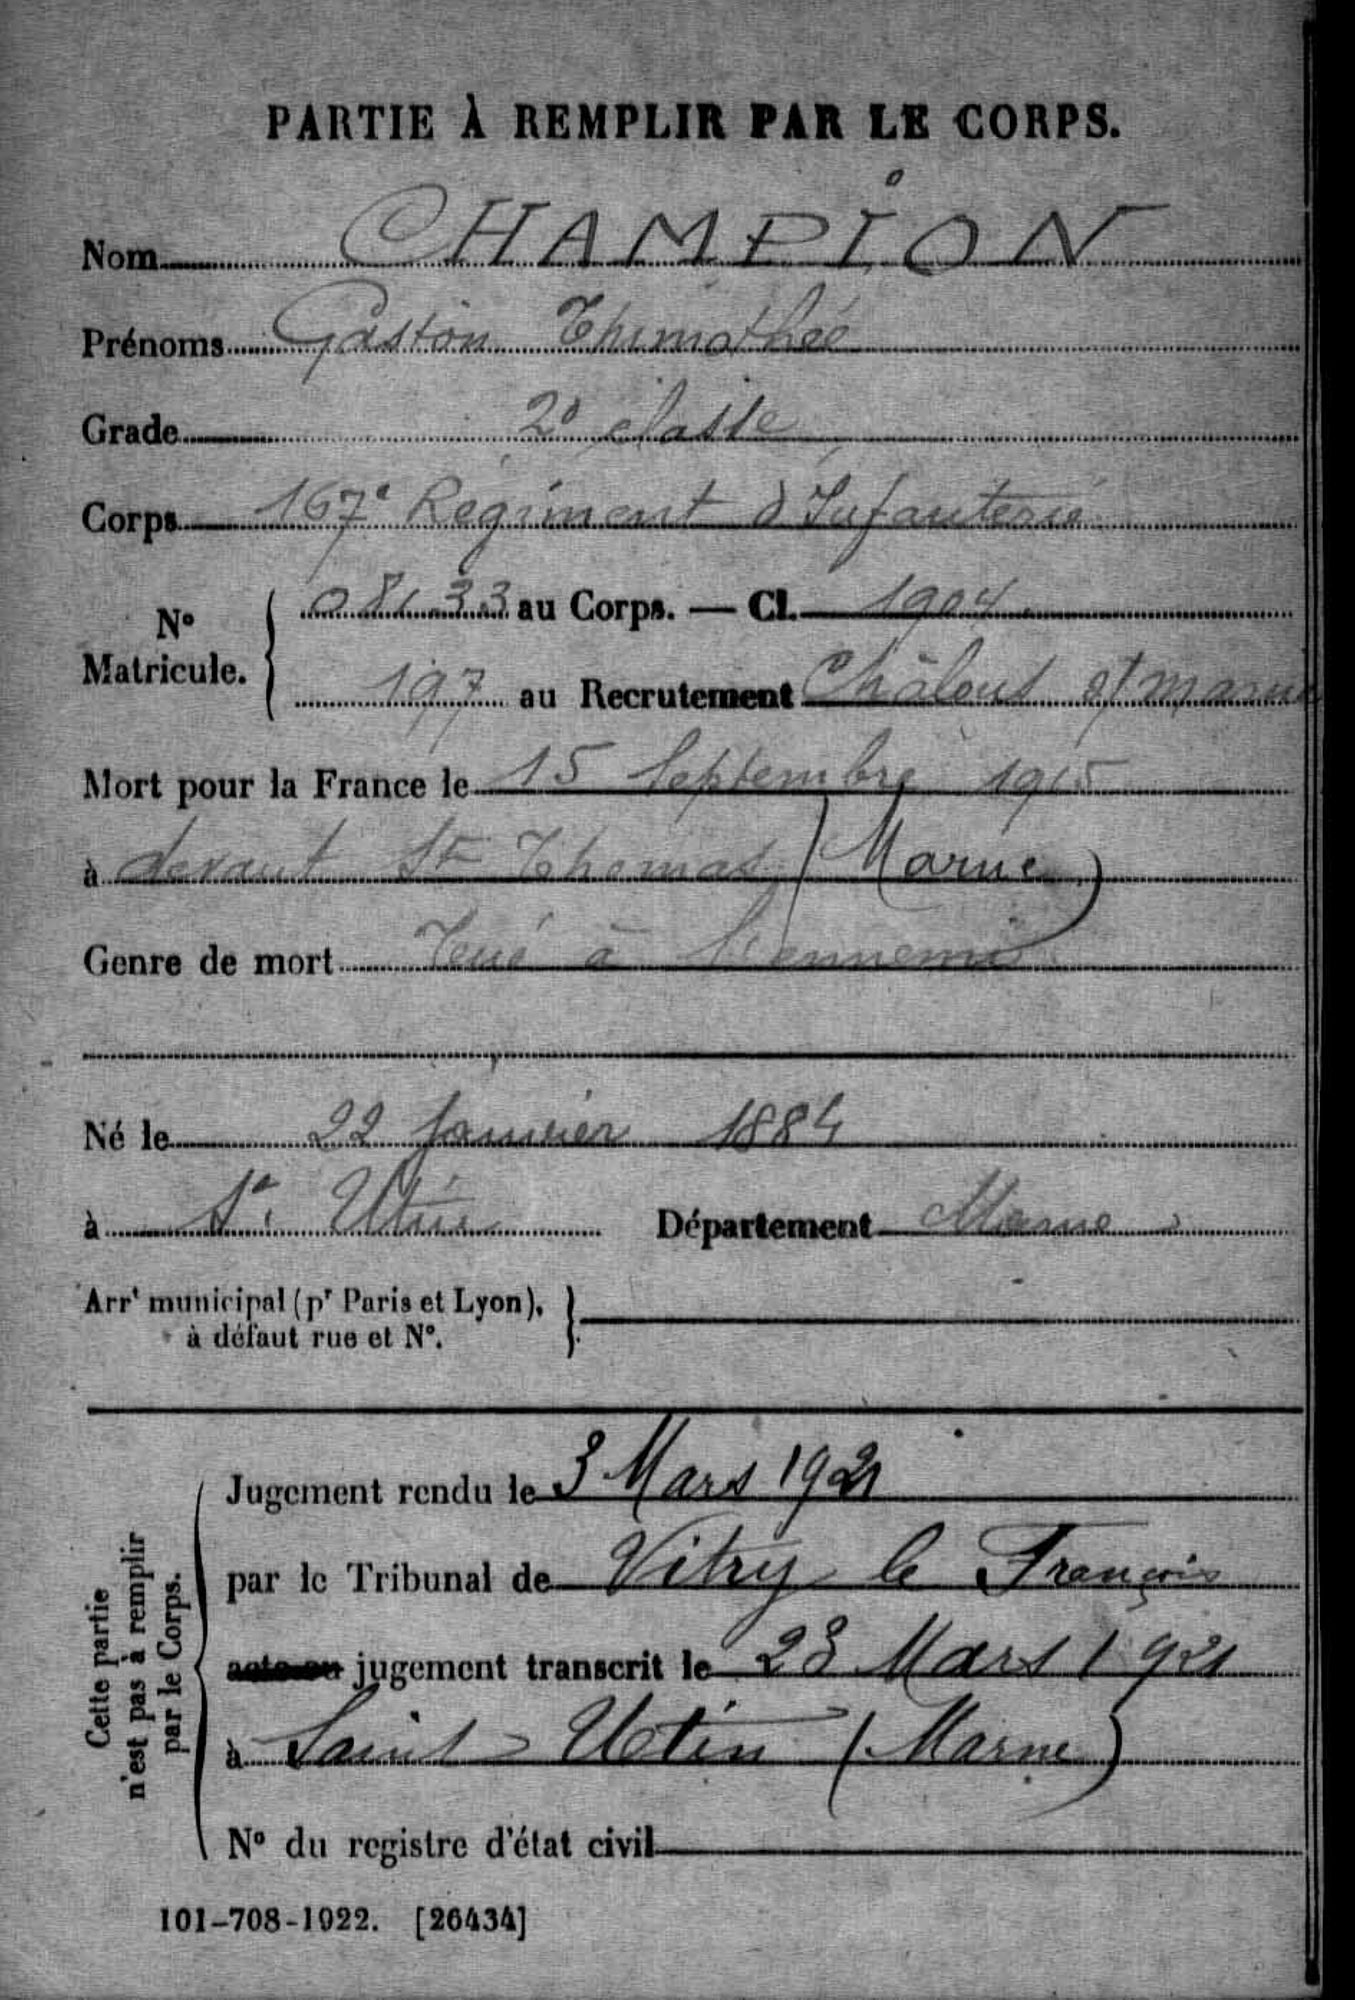 PARTIE À REMPLIR PAR LE CORPS.
Nom CHAMPION
Prénoms Gaston Thimothée
Grade 2e classe
Corps 167e Régiment d'Infanterie
No Matricule. { 08133 au Corps. — Cl. 1904.
197 au Recrutement Châlons s/ marne
Mort pour la France le 15 Septembre 1915
à devant St Thomas (Marne)
Genre de mort Tué à l'ennemi
Né le 22 Janvier 1884
à St. Utin Département Marne
Arrt municipal (pr Paris et Lyon), à défaut rue et No. }
Cette partie n'est pas à remplir par le Corps.
Jugement rendu le 3 Mars 1921
par le Tribunal de Vitry le François
acte ou jugement transcrit le 23 Mars 1921
à Saint-Utin (Marne)
No du registre d'état civil
101-708-1922. [26434]